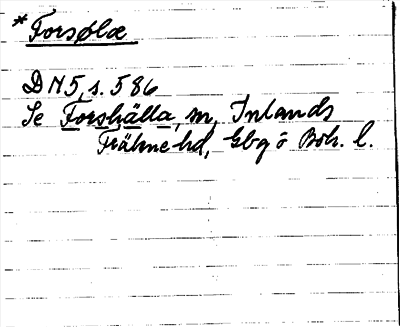 *Forsølæ
DN 5, s. 586
Se Forshälla, sn, Inlands
Fräkne hd, Gbg o Boh. l.